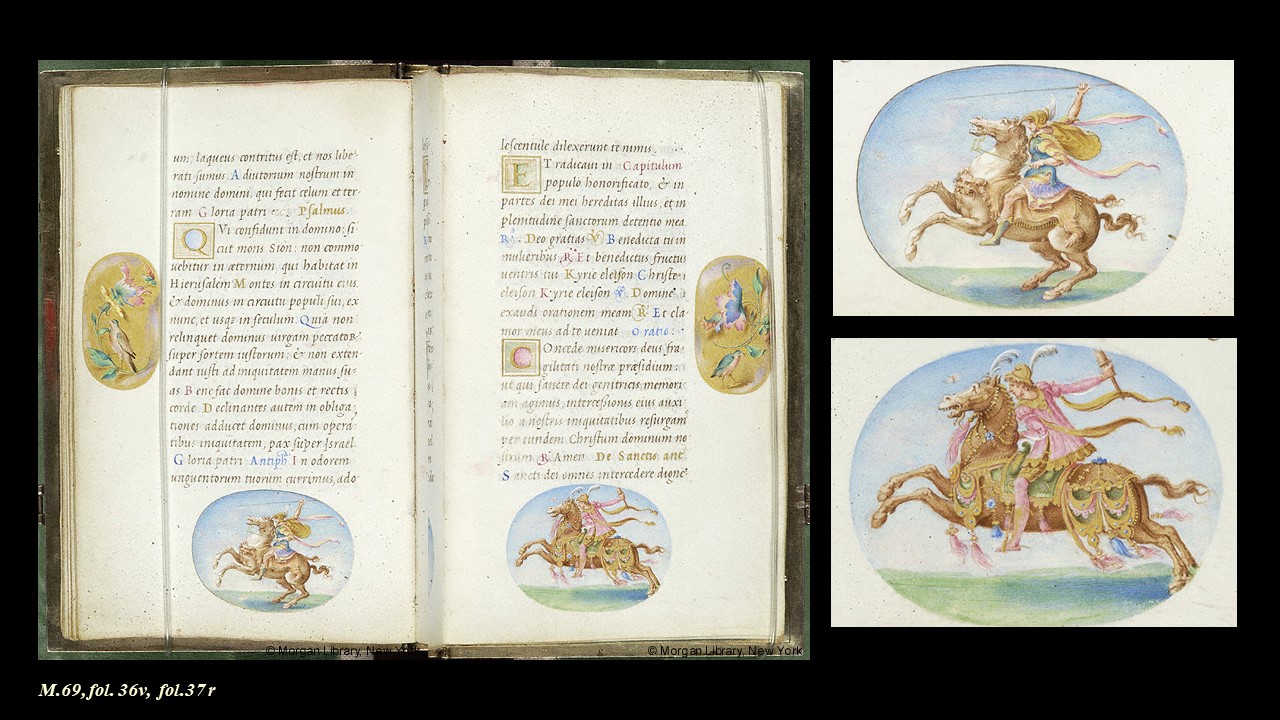 um, laqueus contritus est, et nos libe-
rati sumus Adiutorium nostrum in
nomine domini, qui fecit celum et ter-
ram Gloria patri Psalmus.
Q Vi confidunt in domino: si
cut mons Sion: non commo
uebitur in æternum, qui habitat in
Hierusalem Montes in circuitu eius,
& dominus in circuitu populi sui, ex
nunc, et usq; in seculum. Quia non
relinquet dominus uirgam peccator
super sortem iustorum; & non exten-
dant iusti ad iniquitatem manus su-
as Bene fac domine bonis et rectis
corde Declinantes autem in obliga-
tiones adducet dominus, cum opera
tibus iniquitatem, pax super Israel.
Gloria patri Antiph In odorem
unguentorum tuorum currimus, ado
lescentule dilexerunt te nimis.
E T radicaui in Capitulum
populo honorificato, & in
partes dei mei hereditas illius, et in
plenitudine sanctorum detentio mea.
R. Deo gratias V Benedicta tu in
mulieribus R Et benedictus fructus
uentris tui Kyrie eleison Christe
eleison Kyrie eleison V. Domine
exaudi orationem meam R Et cla-
mor meus ad te ueniat Oratio:
C Oncede misericors deus fra
gilitati nostræ præsidium:
ut qui sancte dei genitricis memori
am agimus, intercessionis eius auxi
lio a nostris iniquitatibus resurgam
per eundem Christum dominum no
strum R Amen De Sanctis ant
Sancti dei omnes intercedere digne
© Morgan Library, New York
© Morgan Library, New York
M.69, fol. 36v, fol.37r